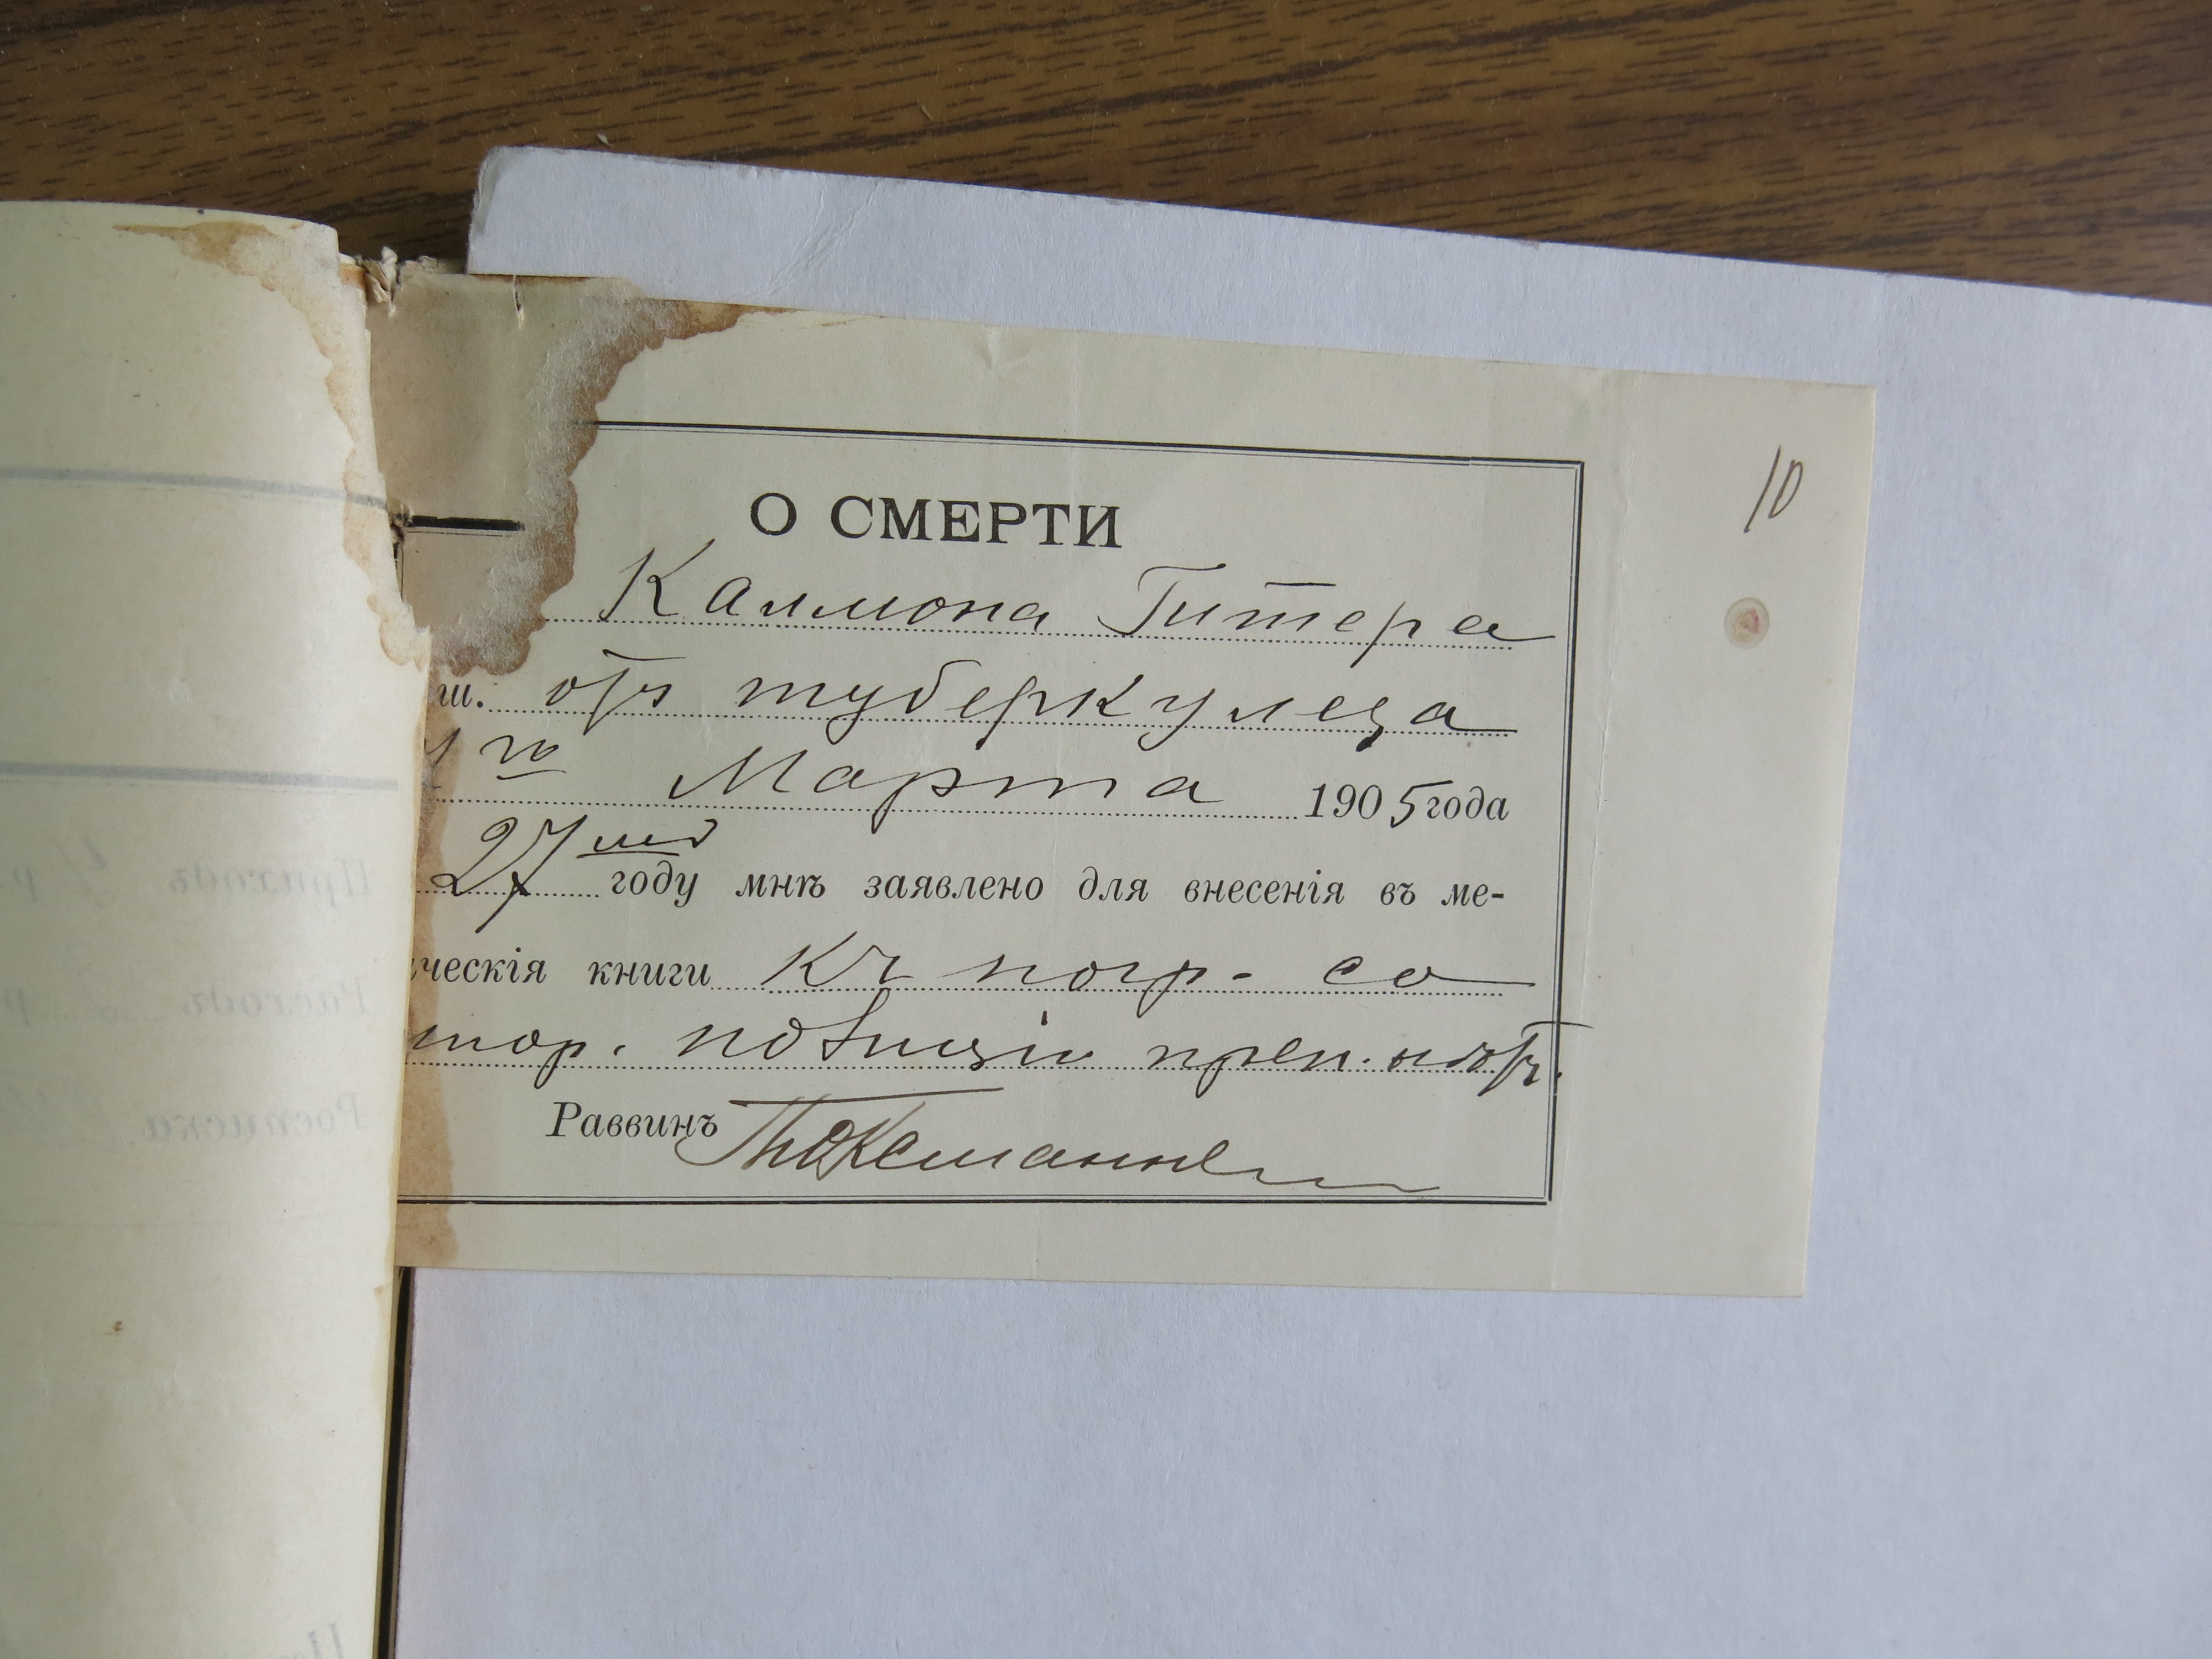 10
О СМЕРТИ
Калмона Гитера
ш. отъ туберкулеза
го Марта 1905 года
27ми году мнѣ заявлено для внесенія въ ме-
ческія книги Къ погр. со
тор. полиціи преп. нѣтъ.
Раввинъ
Приходъ р
Расходъ р
Росписка